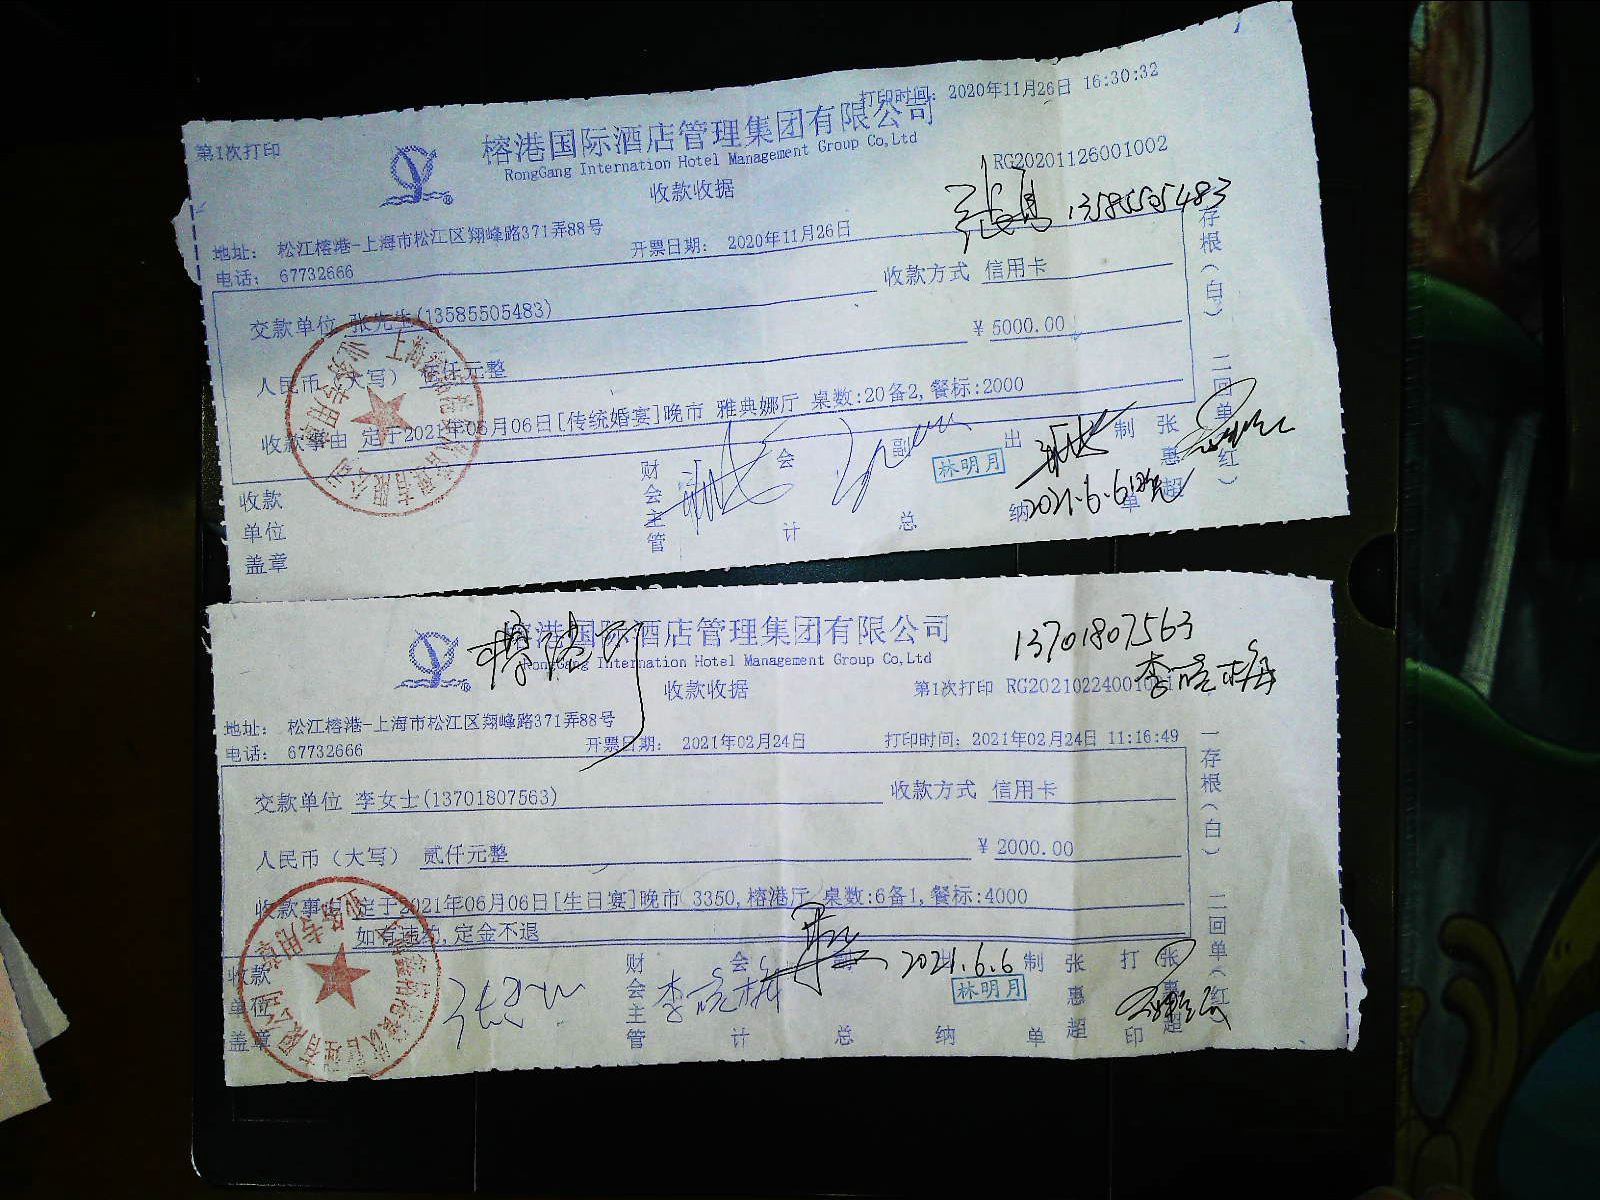 打印时间: 2020年11月26日 16:30:32
第1次打印
榕港国际酒店管理集团有限公司
RongGang Internation Hotel Management Group Co,Ltd
RG20201126001002
收款收据
13585505483
地址: 松江榕港-上海市松江区翔峰路371弄88号
开票日期: 2020年11月26日
电话: 67732666
收款方式 信用卡
交款单位 张先生(13585505483)
人民币(大写) 伍仟元整 ¥ 5000.00
收款事由 定于2021年06月06日[传统婚宴]晚市 雅典娜厅 桌数:20备2,餐标:2000
收款单位盖章
财会主管 会计 副总 出纳 制单 张惠超
林明月
2021.6.6
存根(白) 二回单(红)
榕港国际酒店管理集团有限公司
RongGang Internation Hotel Management Group Co,Ltd
13701807563
收款收据
第1次打印
地址: 松江榕港-上海市松江区翔峰路371弄88号
电话: 67732666
开票日期: 2021年02月24日
打印时间: 2021年02月24日 11:16:49
交款单位 李女士(13701807563)
收款方式 信用卡
人民币(大写) 贰仟元整 ¥ 2000.00
收款事由 定于2021年06月06日[生日宴]晚市 3350,榕港厅 桌数:6备1,餐标:4000
如有违约,定金不退
收款单位盖章
财会主管 会计 副总 出纳 制单 张惠超 打印 张惠超
2021.6.6
林明月
一存根(白) 二回单(红)